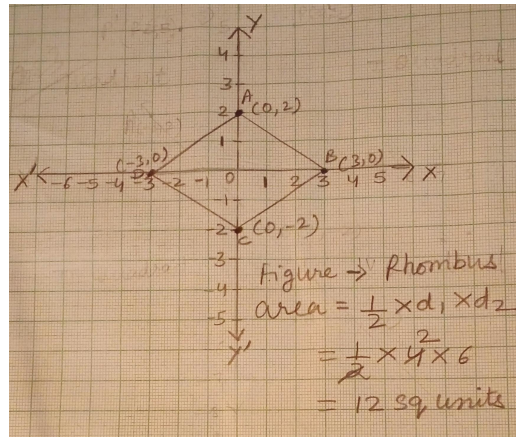 Y
4
3
A
2 (0,2)
1
(-3,0) B (3,0)
X' -6 -5 -4 -3 -2 -1 0 1 2 3 4 5 X
D
-1
-2 (0,-2)
C
-3
-4
-5
Y'
Figure → Rhombus
area = 1/2 × d1 × d2
= 1/2 × 4 2 × 6
= 12 sq units